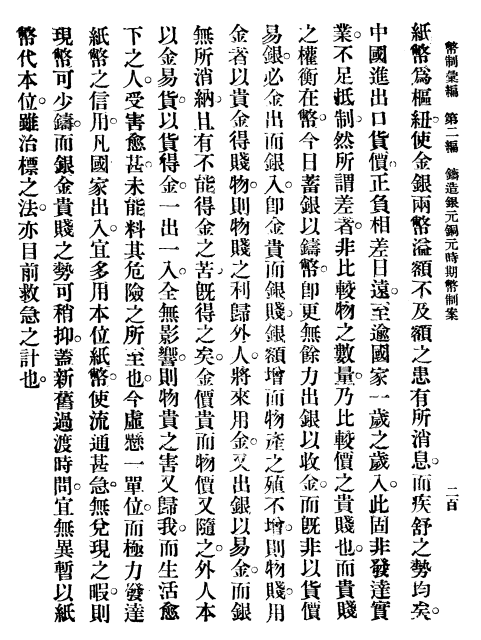 幣制彙編　第二編　鑄造銀元銅元時期幣制案　二百
紙幣爲樞紐。使金銀兩幣溢額不及額之患有所消息。而疾舒之勢均矣。
中國進出口貨價。正負相差日遠。至逾國家一歲之歲入。此固非發達實
業。不足抵制。然所謂差者。非比較物之數量。乃比較價之貴賤也。而貴賤
之權衡在幣。今日蓄銀以鑄幣。卽更無餘力出銀以收金。而旣非以貨價
易銀。必金出而銀入。卽金貴而銀賤。銀額增而物產之殖不增。則物賤。用
金者以貴金得賤物。則物賤之利歸外人。將來用金。又出銀以易金。而銀
無所消納。且有不能得金之苦。旣得之矣。金價貴而物價又隨之。外人本
以金易貨。以貨得金。一出一入。全無影響。則物貴之害又歸我。而生活愈
下之人。受害愈甚。未能料其危險之所至也。今虛懸一單位。而極力發達
紙幣之信用。凡國家出入。宜多用本位紙幣。使流通甚急。無兌現之暇。則
現幣可少鑄。而銀金貴賤之勢可稍抑。蓋新舊過渡時間。宜無異暫以紙
幣代本位。雖治標之法。亦目前救急之計也。